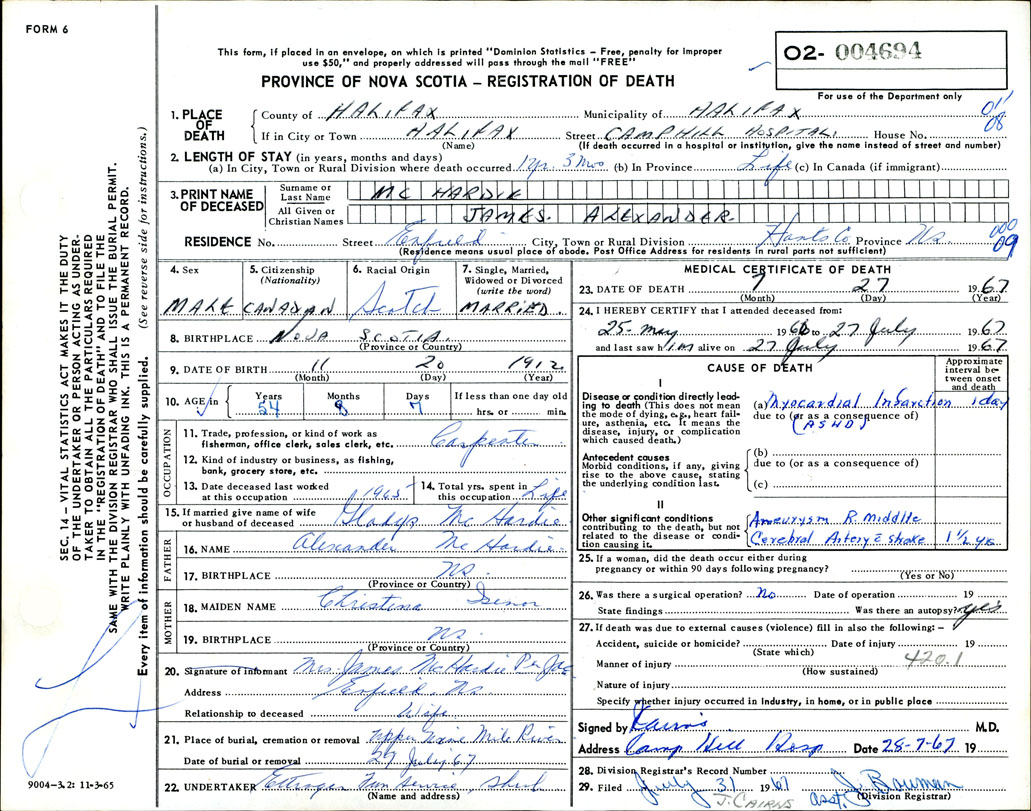 FORM 6
This form, if placed in an envelope, on which is printed "Dominion Statistics – Free, penalty for improper
use $50," and properly addressed will pass through the mail "FREE"
PROVINCE OF NOVA SCOTIA – REGISTRATION OF DEATH
O2- 004694
For use of the Department only
1. PLACE OF DEATH County of HALIFAX Municipality of HALIFAX 011
If in City or Town HALIFAX Street CAMPHILL HOSPITAL House No. 08
(Name) (If death occurred in a hospital or institution, give the name instead of street and number)
2. LENGTH OF STAY (in years, months and days)
(a) In City, Town or Rural Division where death occurred 1 yr. 3 Mos (b) In Province Life (c) In Canada (if immigrant)
3. PRINT NAME OF DECEASED
Surname or Last Name MC HARDIE
All Given or Christian Names JAMES. ALEXANDER.
RESIDENCE No. Street Enfield City, Town or Rural Division Hants Co Province NS. 000 09
(Residence means usual place of abode. Post Office Address for residents in rural parts not sufficient)
4. Sex MALE
5. Citizenship (Nationality) CANADIAN
6. Racial Origin Scotch
7. Single, Married, Widowed or Divorced (write the word) MARRIED.
8. BIRTHPLACE NOVA SCOTIA
(Province or Country)
9. DATE OF BIRTH 11 20 1912
(Month) (Day) (Year)
10. AGE in Years 54 Months 8 Days 7 If less than one day old hrs. or min.
OCCUPATION
11. Trade, profession, or kind of work as
fisherman, office clerk, sales clerk, etc. Carpenter
12. Kind of industry or business, as fishing,
bank, grocery store, etc.
13. Date deceased last worked at this occupation 1965
14. Total yrs. spent in this occupation Life
15. If married give name of wife
or husband of deceased Gladys Mc Hardie
FATHER
16. NAME Alexander Mc Hardie
17. BIRTHPLACE NS.
(Province or Country)
MOTHER
18. MAIDEN NAME Christina Isenor
19. BIRTHPLACE NS.
(Province or Country)
20. Signature of informant Mrs. James Mc Hardie Per
Address Enfield NS.
Relationship to deceased Wife
21. Place of burial, cremation or removal Upper Nine Mile River
Date of burial or removal 29 July 67
22. UNDERTAKER
(Name and address)
MEDICAL CERTIFICATE OF DEATH
23. DATE OF DEATH 7 27 1967
(Month) (Day) (Year)
24. I HEREBY CERTIFY that I attended deceased from:
25- May 1966 to 27 July 1967
and last saw him alive on 27 July 1967
CAUSE OF DEATH
Approximate interval between onset and death
I
Disease or condition directly leading to death (This does not mean
the mode of dying, e.g., heart failure, asthenia, etc. It means the
disease, injury, or complication
which caused death.)
(a) Myocardial Infarction 1 day
due to (or as a consequence of)
(ASHD)
Antecedent causes
Morbid conditions, if any, giving
rise to the above cause, stating
the underlying condition last.
(b)
due to (or as a consequence of)
(c)
II
Other significant conditions
contributing to the death, but not
related to the disease or condition causing it.
Aneurysm R. Middle
Cerebral Artery c̄ stroke 1 1/2 yrs
25. If a woman, did the death occur either during
pregnancy or within 90 days following pregnancy?
(Yes or No)
26. Was there a surgical operation? No Date of operation 19
State findings Was there an autopsy? yes
27. If death was due to external causes (violence) fill in also the following: –
Accident, suicide or homicide? Date of injury 19
(State which)
Manner of injury 420.1
(How sustained)
Nature of injury
Specify whether injury occurred in industry, in home, or in public place
Signed by M.D.
Address Camp Hill Hosp Date 28-7-67 19
28. Division Registrar's Record Number
29. Filed July 31 1967 Asst
J. CAIRNS
(Division Registrar)
SEC. 14 – VITAL STATISTICS ACT MAKES IT THE DUTY
OF THE UNDERTAKER OR PERSON ACTING AS UNDERTAKER TO OBTAIN ALL THE PARTICULARS REQUIRED
IN THE "REGISTRATION OF DEATH" AND TO FILE THE
SAME WITH THE DIVISION REGISTRAR WHO SHALL ISSUE THE BURIAL PERMIT.
WRITE PLAINLY WITH UNFADING INK. THIS IS A PERMANENT RECORD.
Every item of information should be carefully supplied. (See reverse side for instructions.)
9004-3.2: 11-3-65